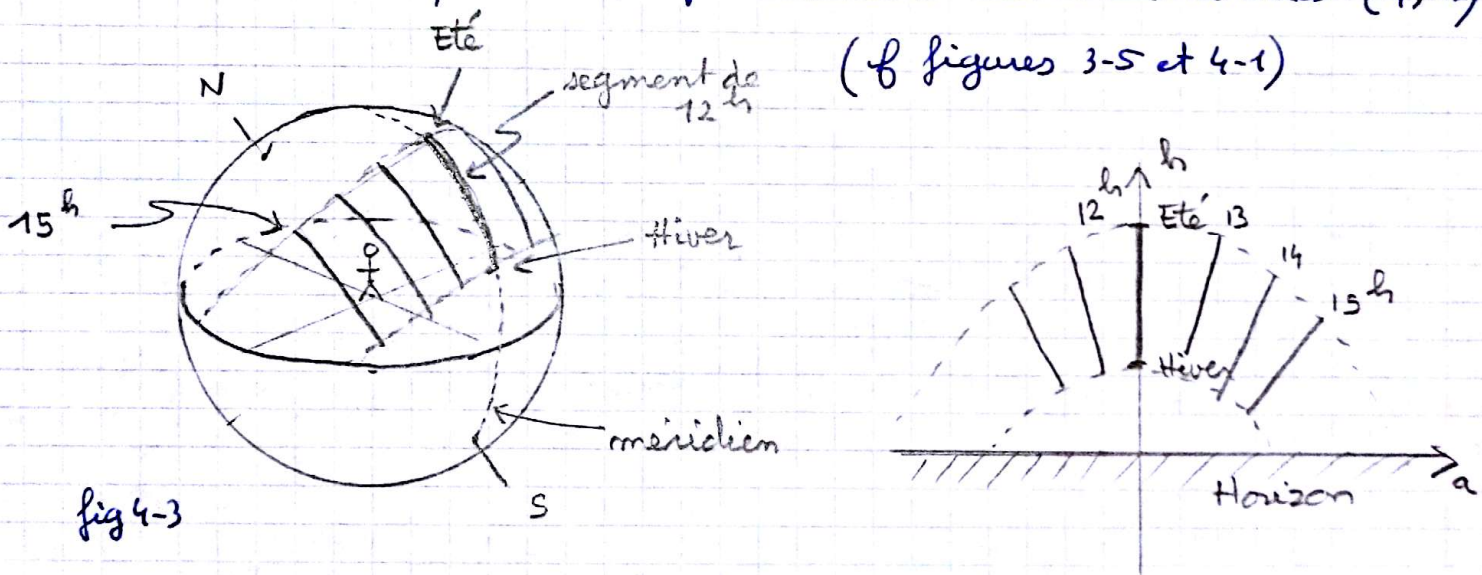 (cf figures 3-5 et 4-1)
Eté
N
segment de
12 h
15 h
Hiver
méridien
S
fig 4-3
h
12 h
Eté
13
14
15 h
Hiver
Horizon
a